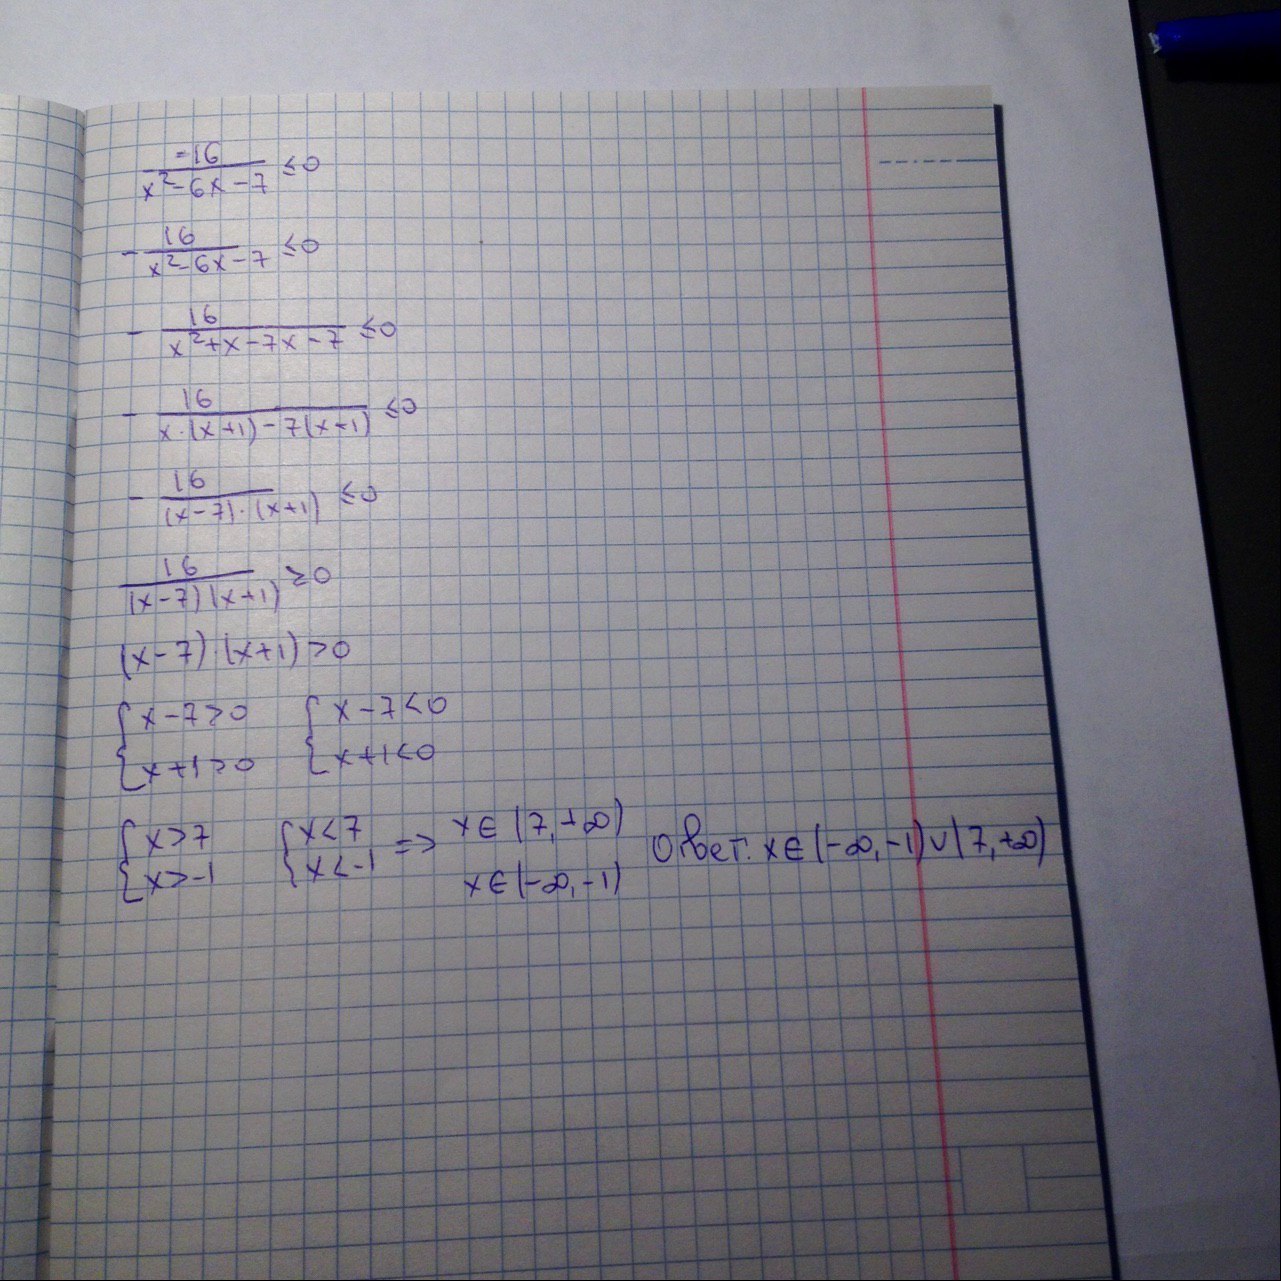 -16/(x²-6x-7) ≤0
-16/(x²-6x-7) ≤0
-16/(x²+x-7x-7) ≤0
-16/(x·(x+1)-7(x+1)) ≤0
-16/((x-7)·(x+1)) ≤0
16/((x-7)(x+1)) ≥0
(x-7)·(x+1)>0
{x-7>0 {x-7<0
{x+1>0 {x+1<0
{x>7 {x<7 => x∈(7,+∞) Ответ: x∈(-∞,-1)∪(7,+∞)
{x>-1 {x<-1 x∈(-∞,-1)